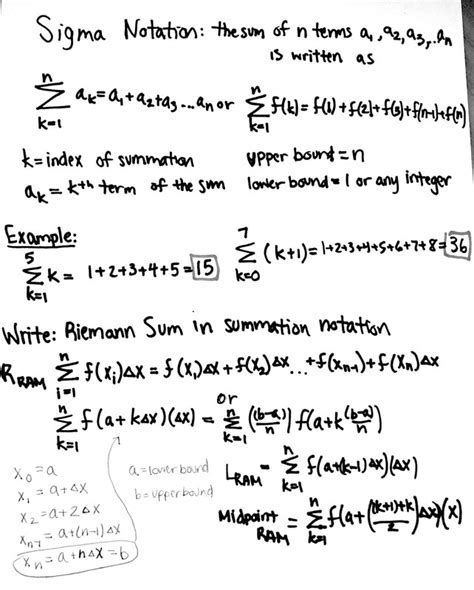 Sigma Notation: the sum of n terms a₁, a₂, a₃,..aₙ
is written as
n∑k=1 aₖ = a₁ + a₂ + a₃ ... aₙ or n∑k=1 f(k) = f(1) + f(2) + f(3) + f(n-1) + f(n)
k = index of summation upper bound = n
aₖ = kᵗʰ term of the sum lower bound = 1 or any integer
Example:
5∑k=1 k = 1+2+3+4+5 = 15 7∑k=0 (k+1) = 1+2+3+4+5+6+7+8 = 36
Write: Riemann Sum in summation notation
RRAM n∑i=1 f(xᵢ)Δx = f(x₁)Δx + f(x₂)Δx ... + f(xₙ₋₁) + f(xₙ)Δx
or
n∑k=1 f(a+kΔx)(Δx) = n∑k=1 ((b-a)/n) f(a+k(b-a)/n)
x₀ = a
x₁ = a+Δx
x₂ = a+2Δx
xₙ₋₁ = a+(n-1)Δx
xₙ = a+nΔx = b
a = lower bound
b = upper bound
LRAM = n∑k=1 f(a+(k-1)Δx)(Δx)
Midpoint RAM = n∑k=1 f(a+((k+1)+k)/2)Δx)(x)